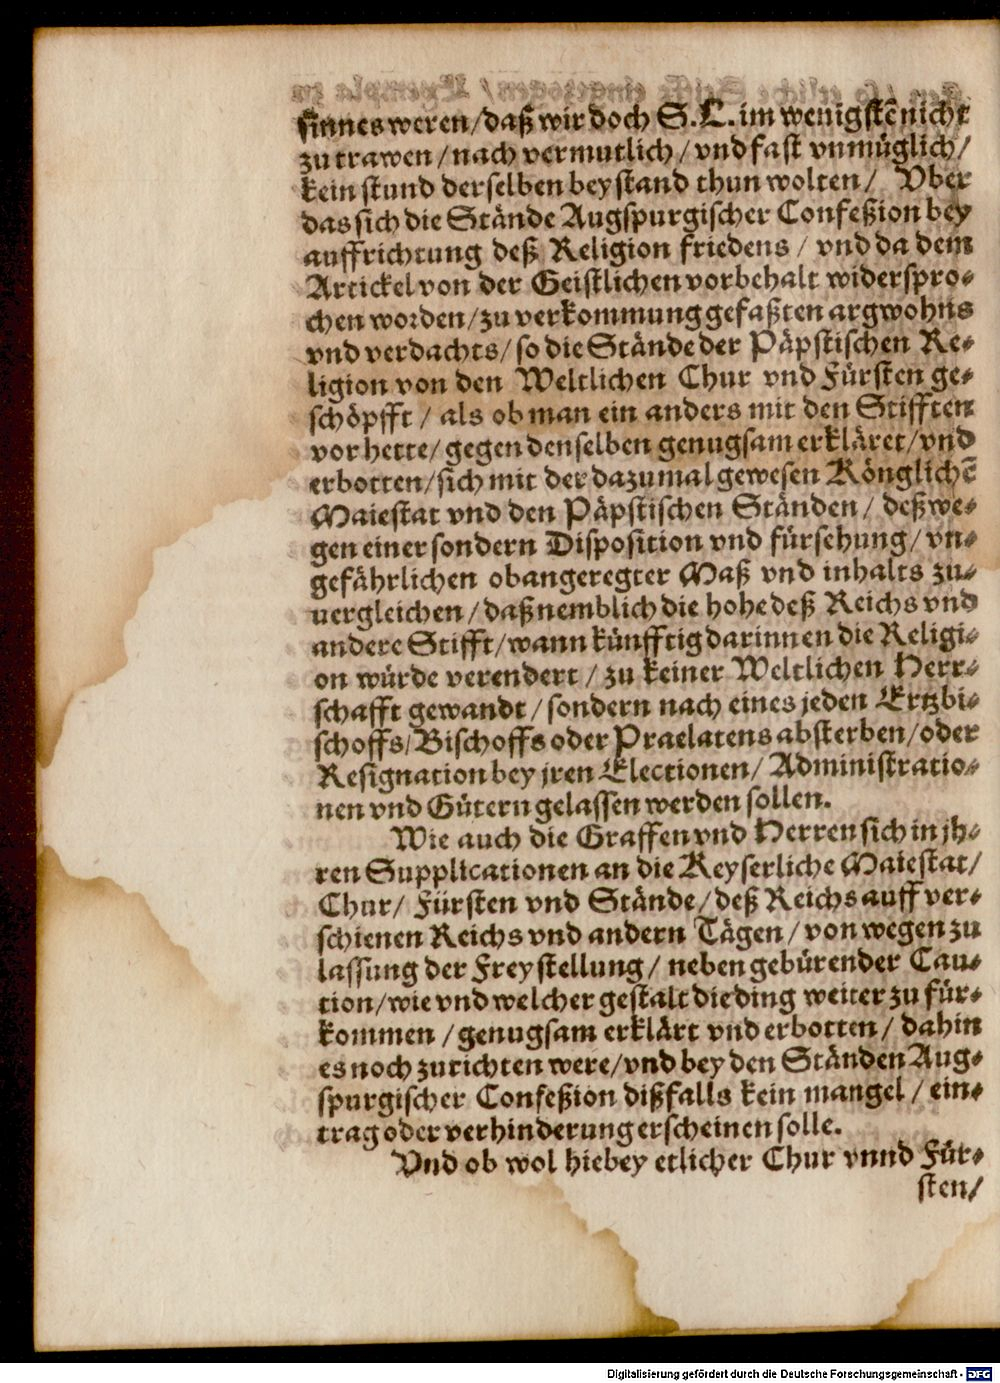 sinnes weren / daß wir doch S. L. im wenigstē nicht
zu trawen / nach vermutlich / vnd fast vnmüglich /
kein stund derselben beystand thun wolten / Vber
das sich die Stände Augspurgischer Confeßion bey
auffrichtung deß Religion friedens / vnd da dem
Artickel von der Geistlichen vorbehalt widerspro-
chen worden / zu verkommung gefaßten argwohns
vnd verdachts / so die Stände der Päpstischen Re-
ligion von den Weltlichen Chur vnd Fürsten ge-
schöpfft / als ob man ein anders mit den Stifften
vor hette / gegen denselben genugsam erkläret / vnd
erbotten / sich mit der dazumal gewesen Königlichē
Maiestat vnd den Päpstischen Ständen / deßwe-
gen einer sondern Disposition vnd fürsehung / vn-
gefährlichen obangeregter Maß vnd inhalts zu-
uergleichen / daß nemblich die hohe deß Reichs vnd
andere Stifft / wann künfftig darinnen die Religi-
on würde verendert / zu keiner Weltlichen Herr-
schafft gewandt / sondern nach eines jeden Ertzbi-
schoffs / Bischoffs oder Praelatens absterben / oder
Resignation bey jren Electionen / Administratio-
nen vnd Gütern gelassen werden sollen.
Wie auch die Graffen vnd Herren sich in jh-
ren Supplicationen an die Keyserliche Maiestat /
Chur / Fürsten vnd Stände / deß Reichs auff ver-
schienen Reichs vnd andern Tägen / von wegen zu
lassung der Freystellung / neben gebürender Cau-
tion / wie vnd welcher gestalt die ding weiter zu für-
kommen / genugsam erklärt vnd erbotten / dahin
es noch zurichten were / vnd bey den Ständen Aug-
spurgischer Confeßion dißfalls kein mangel / ein-
trag oder verhinderung erscheinen solle.
Vnd ob wol hiebey etlicher Chur vnnd Für-
sten /
Digitalisierung gefördert durch die Deutsche Forschungsgemeinschaft - DFG